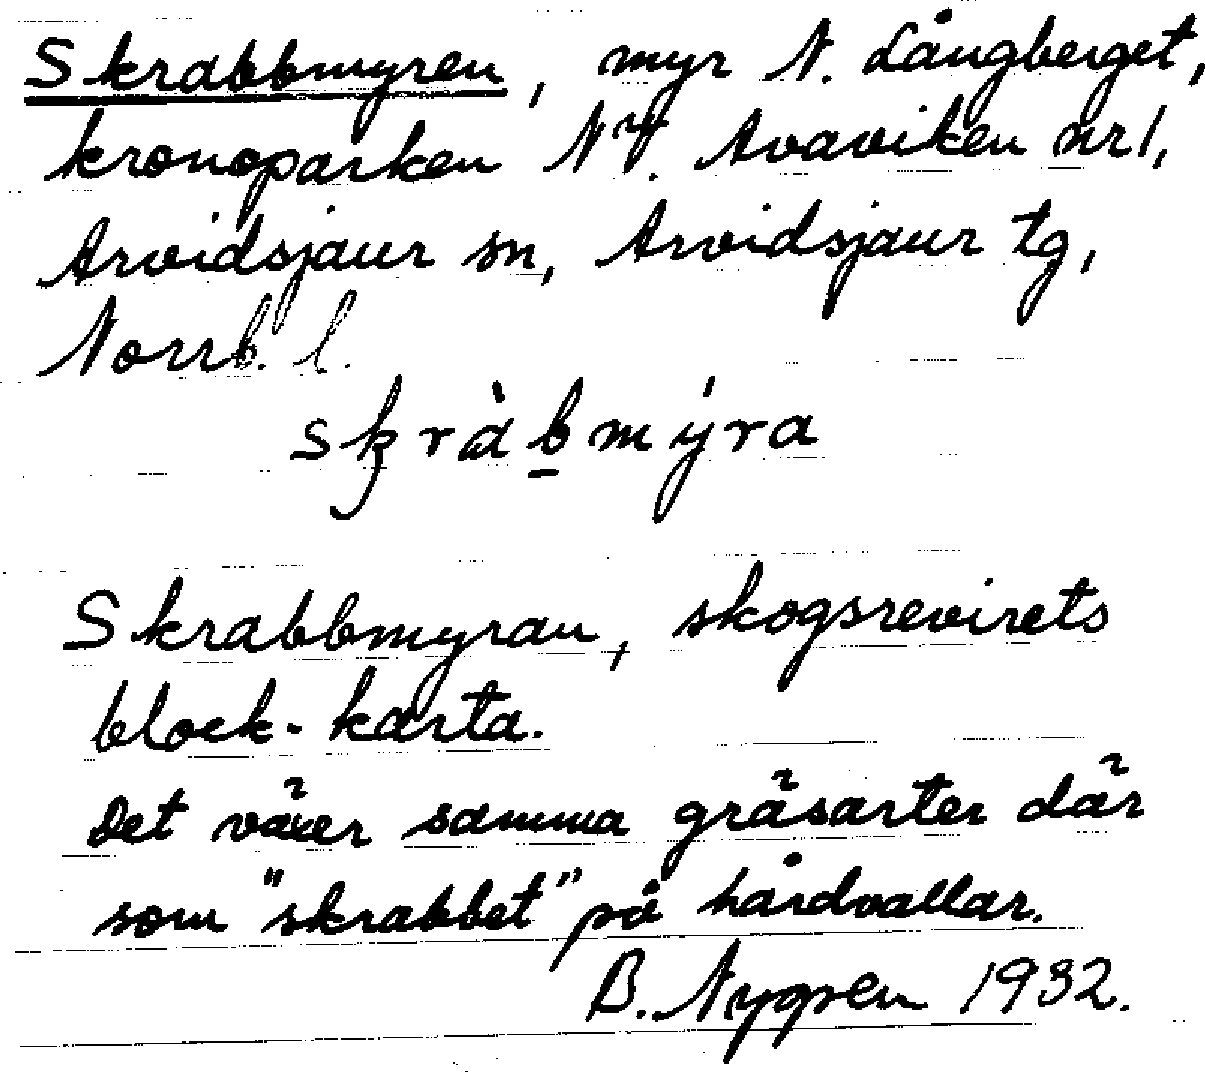 Skrabbmyren, myr N. Långberget,
kronoparken NV. Avaviken nr 1,
Arvidsjaur sn, Arvidsjaur tg,
Norrb. l.
skràb̲mýra
Skrabbmyran, skogsrevirets
block-karta.
Det växer samma gräsarter där
som "skrabbet" på hårdvallar.
B. Nygren 1932.